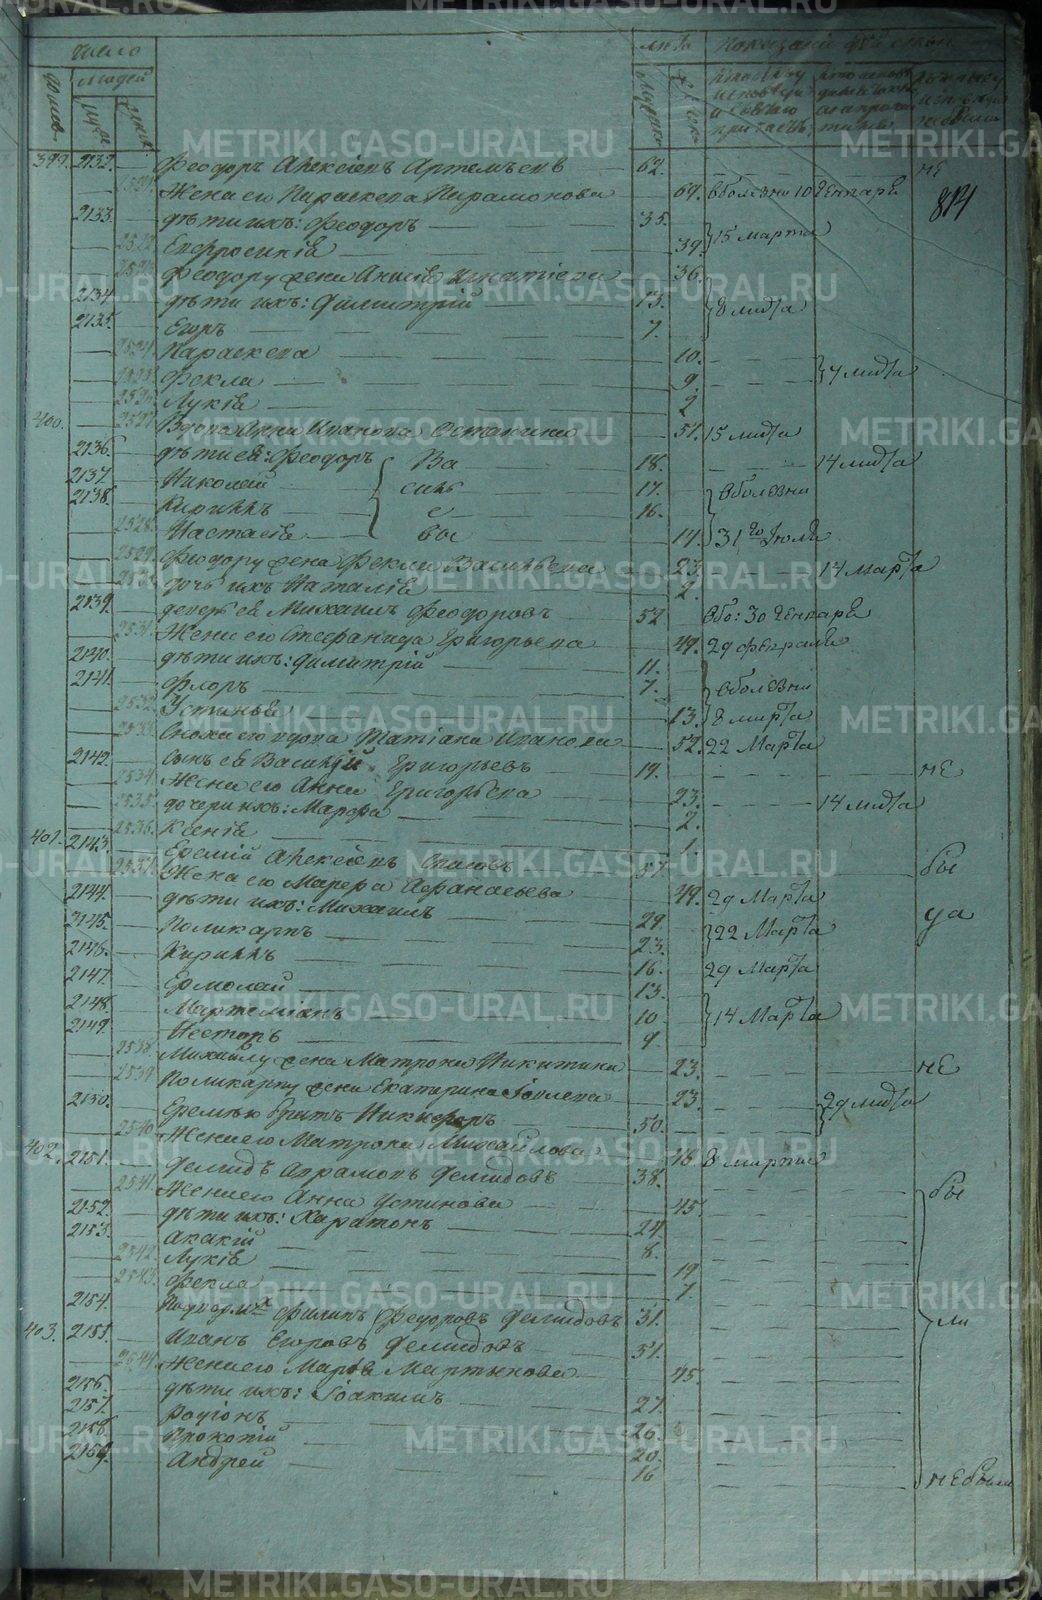 Число
Людей
Лета
399. 2132. Феодоръ Алексѣевъ Артемьевъ 62. не
Жена его Параскева Парамонова 64. в болезни 10 Генваря
814
2133. дѣти ихъ: Феодоръ 35.
Евфросинія 39. 15 Марта
Феодору жена Анисія Игнатіева 36.
2134. дѣти ихъ: Димитрій 13. 8 Марта
2135. Егоръ 7.
Параскева 10.
Фекла 9. 4 Марта
2526. Лукія 2
400. 2527. Вдова Анна Иванова Останина 51. 15 Марта
2136. дѣти ея: Феодоръ Ва 18. 14 Марта
2137. Николай силь 17. в болезни
2138. Кириллъ е 16.
2528. Настасія вы 14. 31го Іюля
2529. Феодору жена Фекла Васильева 23. 14 Марта
2530. дочь ихъ Наталія 2.
2139. деверь ея Михаилъ Феодоровъ 52 в бо: 30 Генваря
2531. Жена его Стефанида Григорьева 49. 29 февраля
2140. дѣти ихъ: Димитрій 11.
2141. Флоръ 7. в болезни
2532. Устинья 13. 8 Марта
2533. Сноха его вдова Татіана Иванова 52. 22 Марта
2142. сынъ ея Василій Григорьевъ 19. не
2534. Жена его Анна Григорьева 23.
2535. дочери ихъ: Марфа 2. 14 Марта
2536. Ксенія 1.
401. 2143. Еремій Алексѣевъ 51 бы
2537. Жена его Марфа Афанасьева 49. 29 Марта
2144. дѣти ихъ: Михаилъ 29. ца
2145. Поликарпъ 23. 22 Марта
2146. Кириллъ 16. 29 Марта
2147. Ермолай 13.
2148. Мартеміанъ 10 14 Марта
2149. Несторъ 9.
2538. Михаилу жена Матрона Никитина 23. не
2539. Поликарпу жена Екатерина Іовлева 23.
2150. Еремѣю братъ Никифоръ 50. 29 Марта
2540. Жена его Матрона Михайлова 48 8 Марта
402. 2151. Демидъ Авраамовъ Демидовъ 38. бы
2541. Жена его Анна Устинова 45.
2152. дѣти ихъ: Харитонъ 24.
2153. Акакій 8.
2542. Лукія 19
2543. Фекла 7.
2154. Филипъ Федоровъ Демидовъ 31. ли
403. 2155. Иванъ Егоровъ Демидовъ 51.
2544. Жена его Марѳа Мартынова 45.
2156. дѣти ихъ: Іоакимъ 27.
2157. Родіонъ 26.
2158. Прокопій 20.
2159. Андрей 16 не были
METRIKI.GASO-URAL.RU